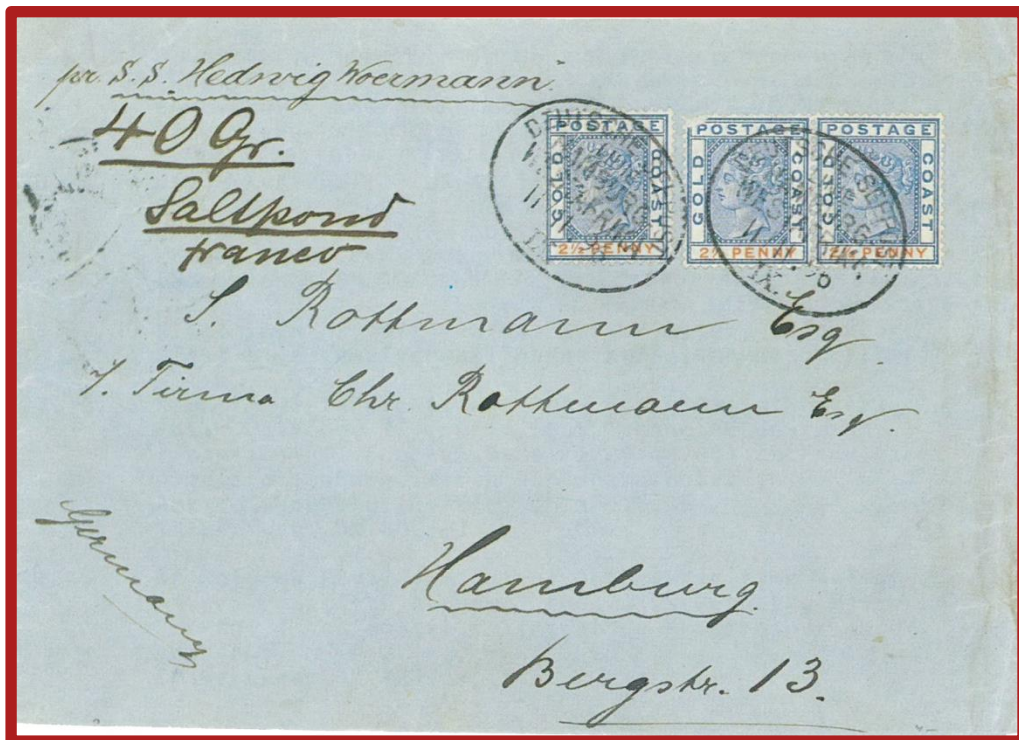 pr. S.S. Hedwig Woermann.
40 Gr.
Saltpond
franco
POSTAGE
GOLD COAST
2½ PENNY
POSTAGE
GOLD COAST
2½ PENNY
POSTAGE
GOLD COAST
2½ PENNY
DEUTSCHE SEEPOST
DEUTSCHE SEEPOST
S. Rottmann Esq
/. Firma Chr. Rottmann Esq.
Germany
Hamburg.
Bergstr. 13.